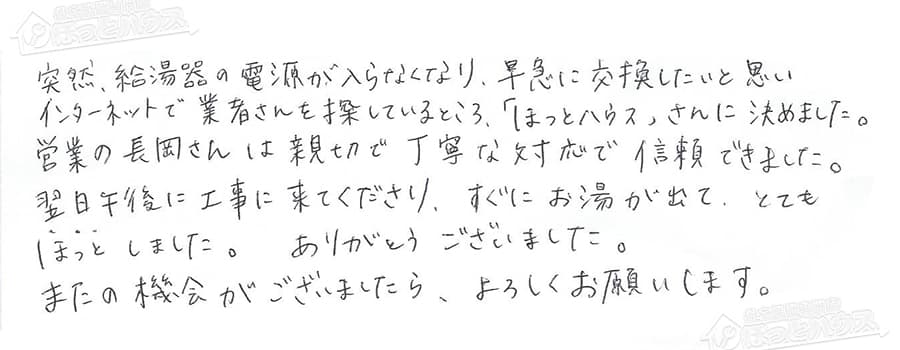 ほっとハウス
突然、給湯器の電源が入らなくなり、早急に交換したいと思い
インターネットで業者さんを探しているところ、「ほっとハウス」さんに決めました。
営業の長岡さんは親切で丁寧な対応で信頼できました。
翌日午後に工事に来てくださり、すぐにお湯が出て、とても
ほっとしました。 ありがとうございました。
またの機会がございましたら、よろしくお願いします。
ほっとハウス